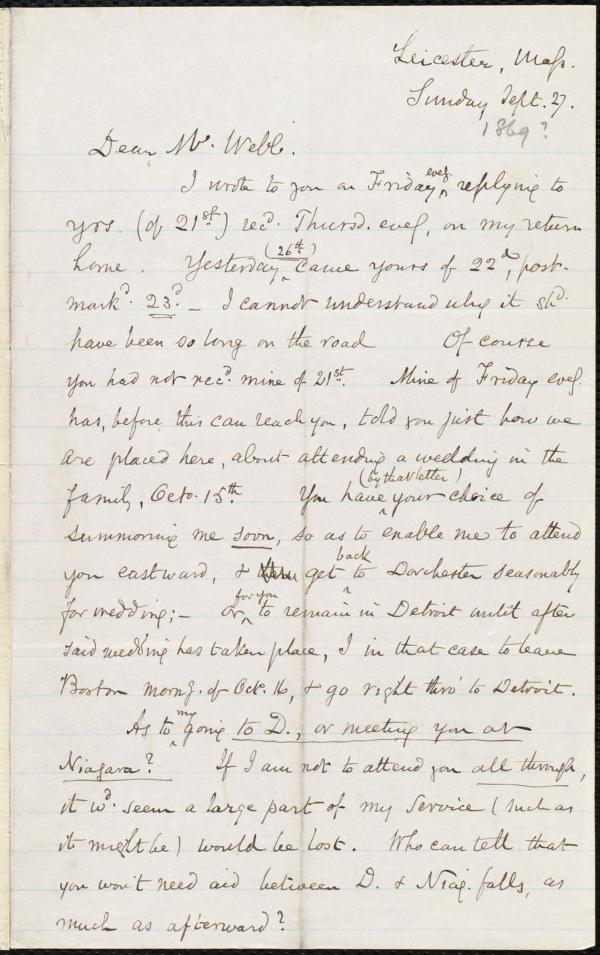 Leicester, Mass.
Sunday, Sept. 27.
1869?
Dear Mr. Webb.
I wrote to you on Friday eveg. replying to
yrs. (of 21st) recd. Thursd. eveg, on my return
home. Yesterday (26th) came yours of 22d, post-
markd. 23d. – I cannot understand why it shd.
have been so long on the road Of course
you had not recd. mine of 21st. Mine of Friday eveg.
has, before this can reach you, told you just how we
are placed here, about attending a wedding in the
family, Octo. 15th You have (by that letter) your choice of
summoning me soon, so as to enable me to attend
you eastward, & get back to Dorchester seasonably
for wedding; – or, for you to remain in Detroit until after
said wedding has taken place, I in that case to leave
Boston morng. of Oct. 16, & go right thro' to Detroit.
As to my going to D., or meeting you at
Niagara? If I am not to attend you all through,
it wd. seem a large part of my Service (such as
it might be) would be lost. Who can tell that
you won't need aid between D. & Niag. falls, as
much as afterward?